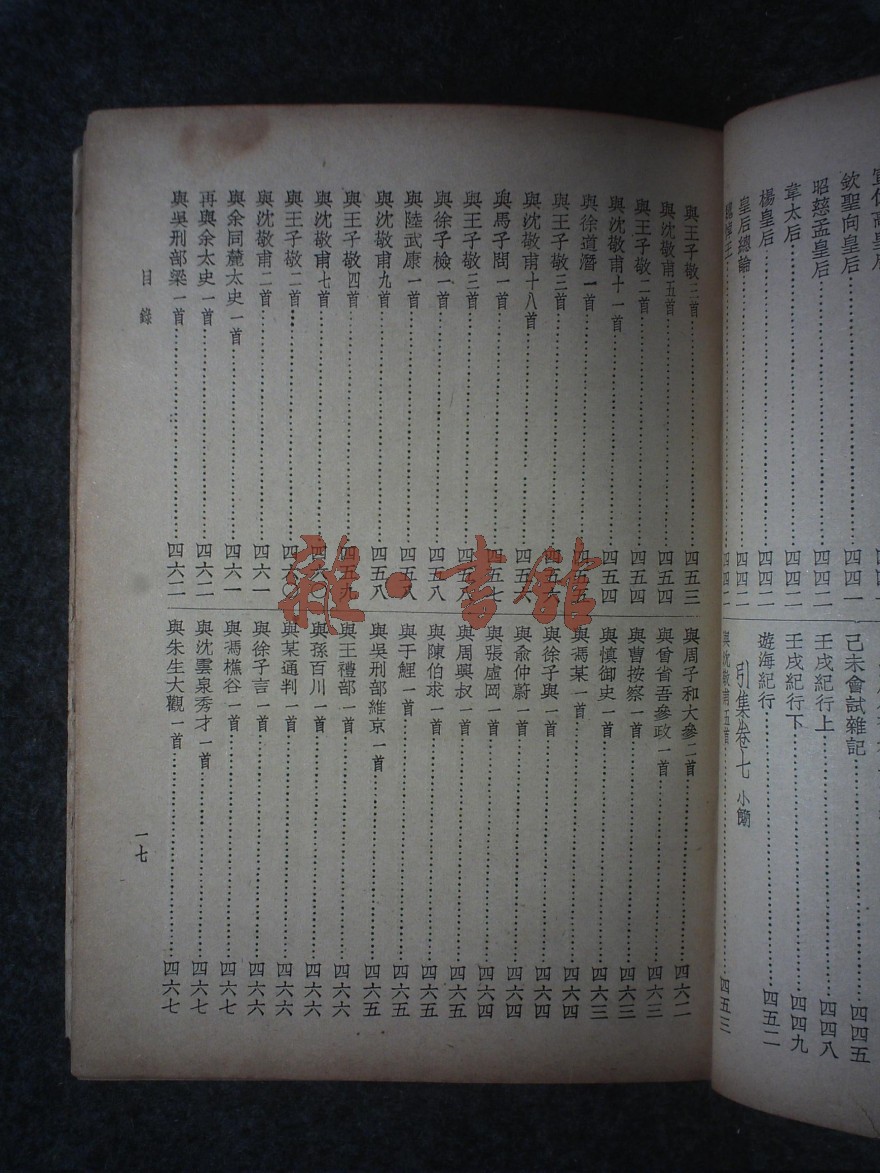 欽聖向皇后……四四一
昭慈孟皇后……四四二
韋太后……四四二
楊皇后……四四二
皇后總論……四四二
己未會試雜記……四四五
壬戌紀行上……四四八
壬戌紀行下……四四九
遊海紀行……四五二
別集卷七 小簡
與沈敬甫五首……四五三
與王子敬三首……四五三
與沈敬甫五首……四五四
與王子敬二首……四五四
與沈敬甫十一首……四五四
與徐道潛一首……四五五
與王子敬三首……四五六
與沈敬甫十八首……四五六
與馬子問一首……四五七
與王子敬三首……四五八
與徐子檢一首……四五八
與陸武康一首……四五八
與沈敬甫九首……四五八
與王子敬四首……四五九
與沈敬甫七首……四六〇
與王子敬二首……四六〇
與沈敬甫二首……四六一
與余同麓太史一首……四六一
再與余太史一首……四六二
與吳刑部梁一首……四六二
與周子和大參二首……四六二
與曾省吾參政一首……四六三
與曹按察一首……四六三
與慎御史一首……四六三
與馮某一首……四六四
與徐子與一首……四六四
與俞仲蔚一首……四六四
與張虛岡一首……四六四
與周興叔一首……四六五
與陳伯求一首……四六五
與于鯉一首……四六五
與吳刑部維京一首……四六五
與王禮部一首……四六六
與孫百川一首……四六六
與某通判一首……四六六
與徐子言一首……四六六
與馮樵谷一首……四六七
與沈雲泉秀才一首……四六七
與朱生大觀一首……四六七
目錄
一七
雜·書館